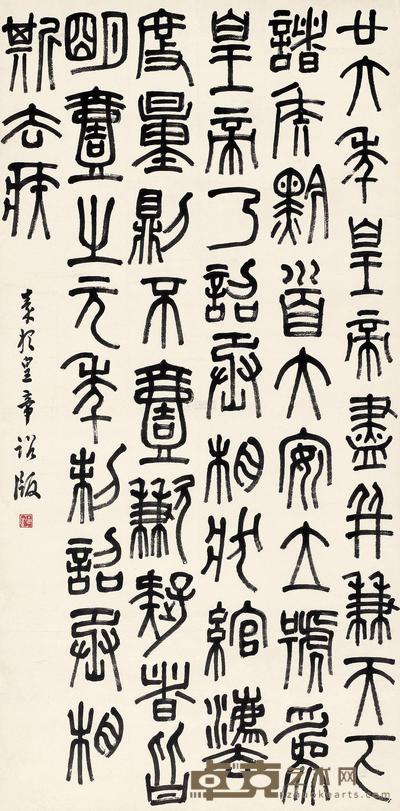 廿六年皇帝盡并兼天下
諸侯黔首大安立號為
皇帝乃詔丞相狀綰灋
度量則不壹歉疑者皆
明壹之元年制詔丞相
斯去疾
秦始皇帝詔版
卓克艺术网